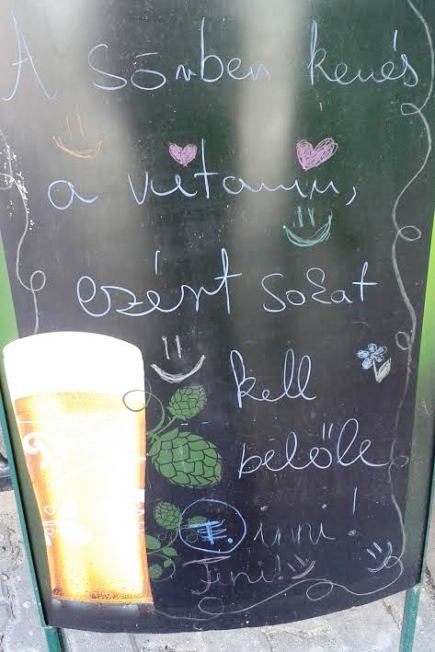 A Sörben kevés
a vitamin,
ezért sokat
kell
belőle
inni!
Fini!